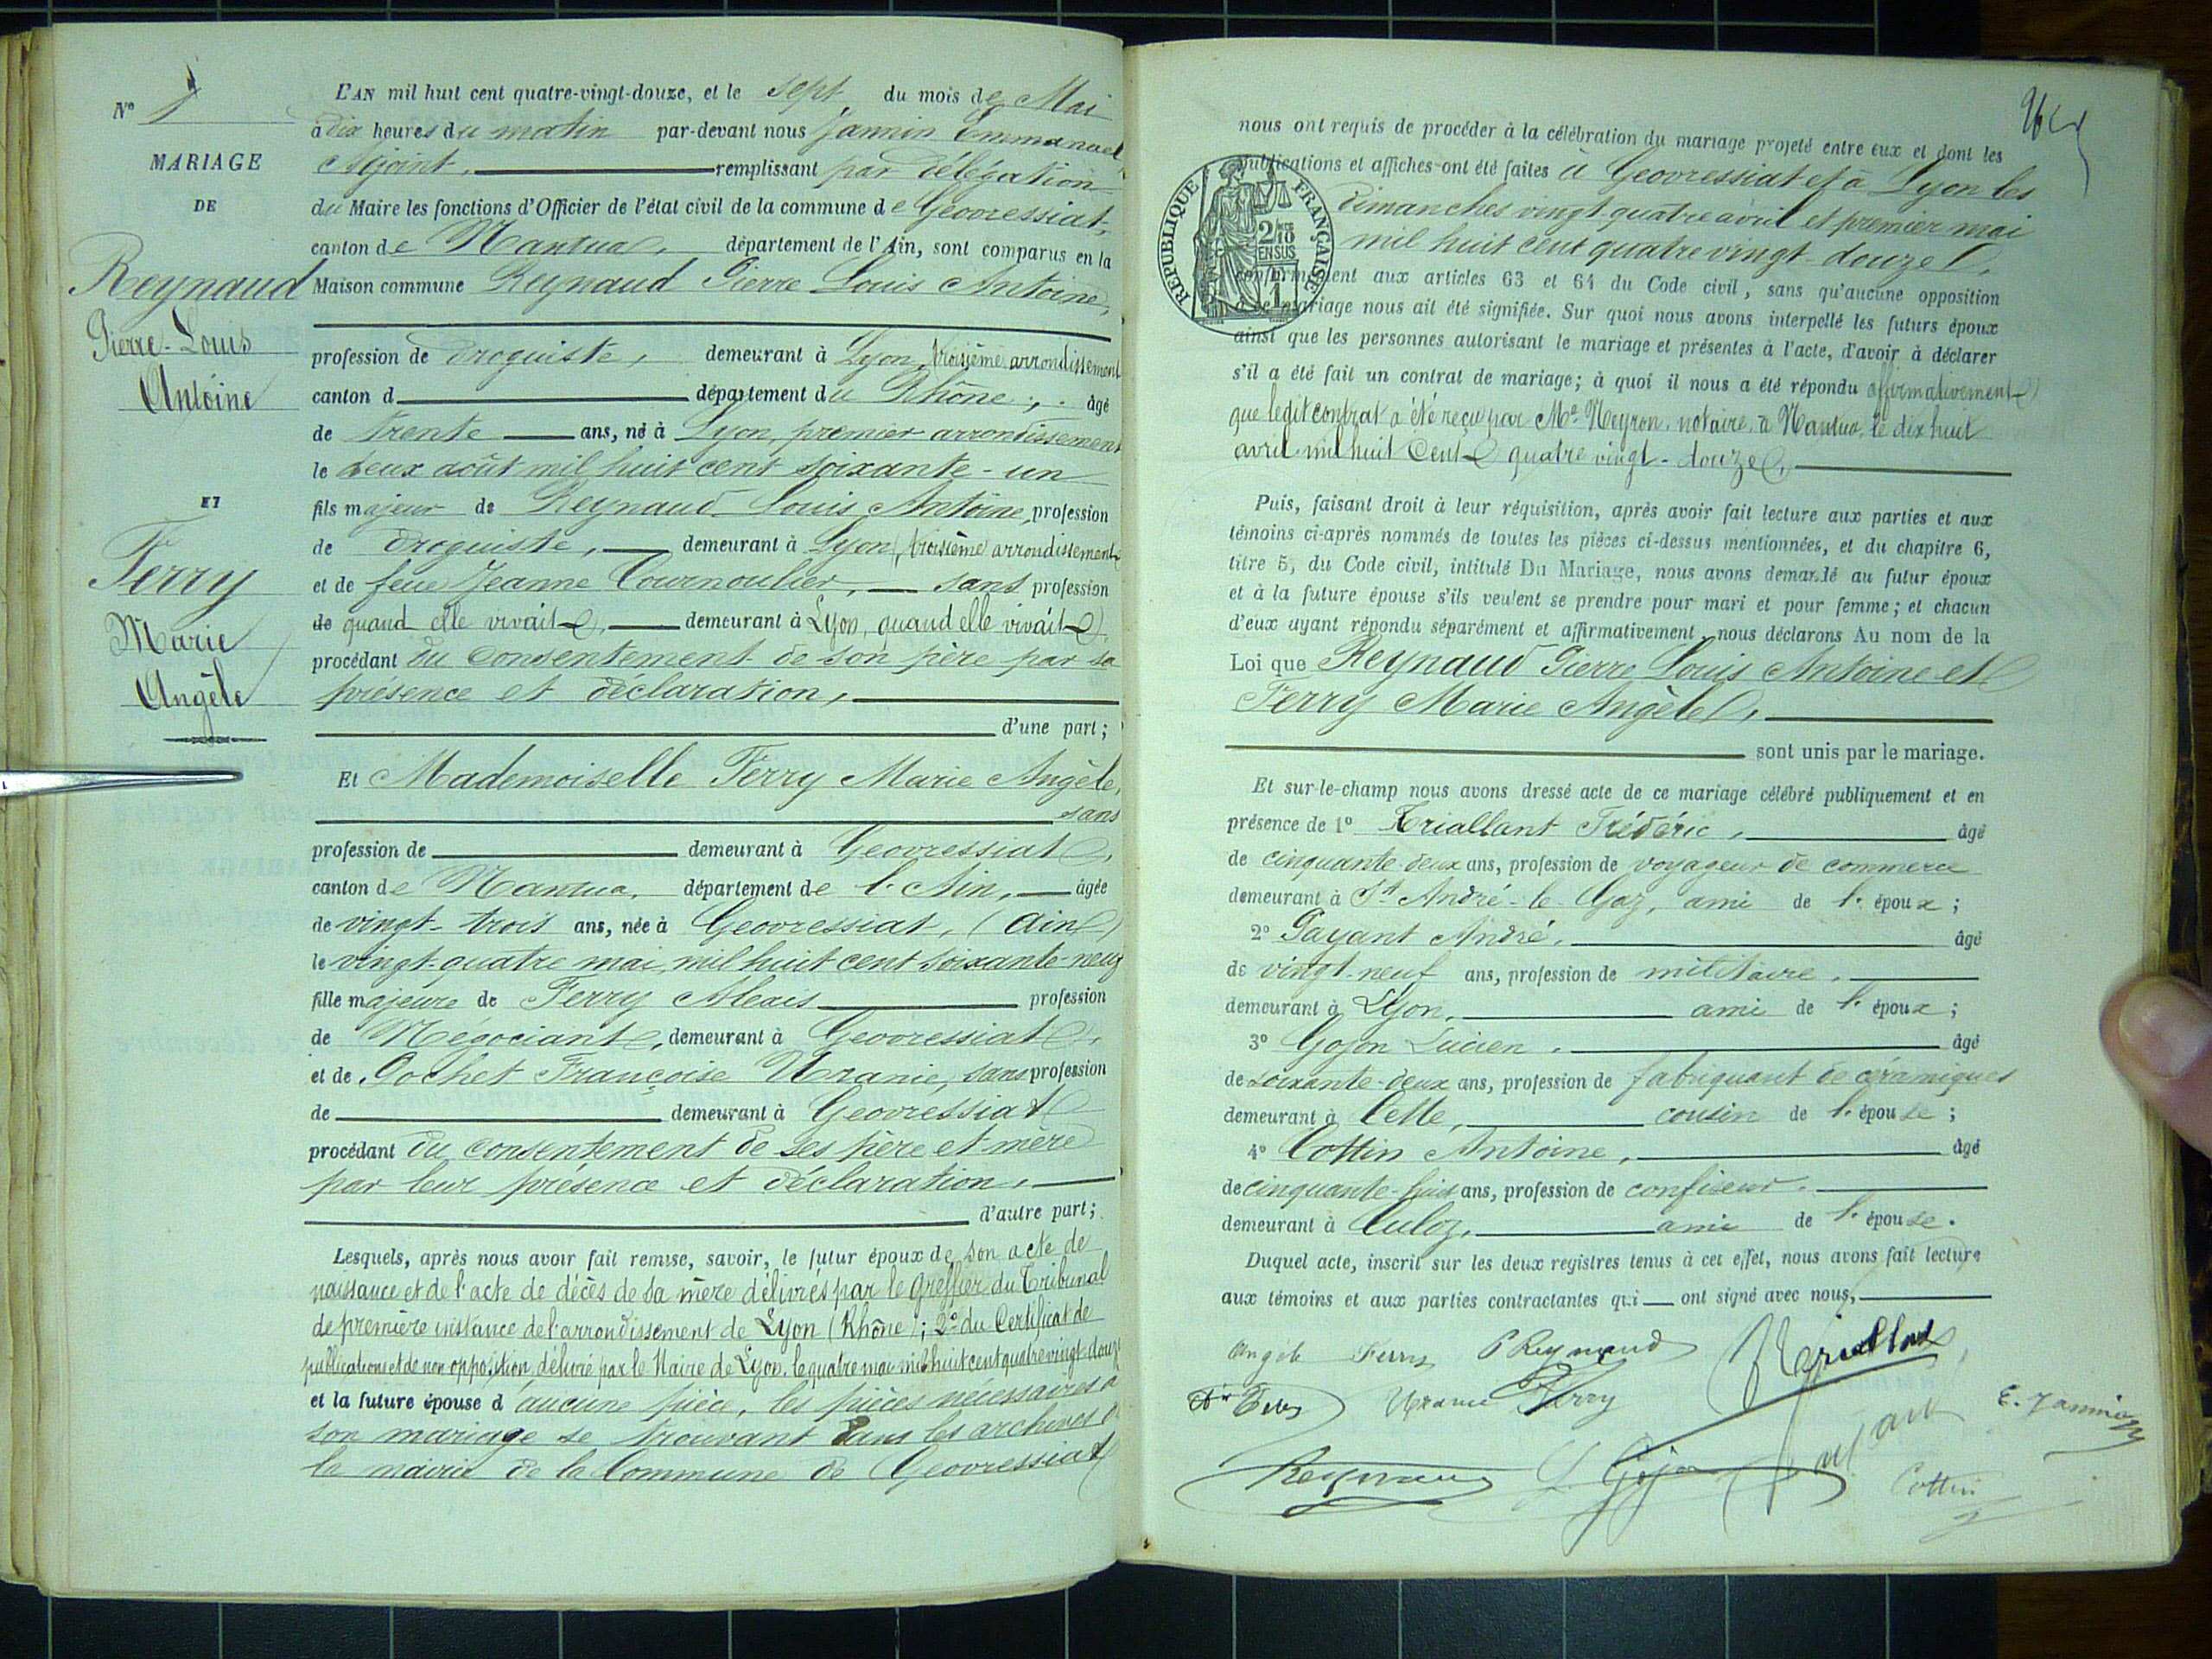 N° 1
MARIAGE
DE
Reynaud
Pierre-Louis
Antoine
ET
Ferry
Marie
Angèle
L'AN mil huit cent quatre-vingt-douze, et le sept du mois de Mai
à dix heures du matin par-devant nous Jannin Emmanuel
Adjoint, remplissant par délégation
du Maire les fonctions d'Officier de l'état civil de la commune de Geovressiat,
canton de Nantua, département de l'Ain, sont comparus en la
Maison commune Reynaud Pierre Louis Antoine,
profession de droguiste, demeurant à Lyon, troisième arrondissement
canton d département du Rhône, âgé
de trente ans, né à Lyon, premier arrondissement
le deux août mil huit cent soixante-un
fils majeur de Reynaud Louis Antoine, profession
de droguiste, demeurant à Lyon, troisième arrondissement
et de feue Jeanne Cournoulier, sans profession
de quand elle vivait, demeurant à Lyon, quand elle vivait,
procédant du consentement de son père par sa
présence et déclaration,
d'une part;
Et Mademoiselle Ferry Marie Angèle,
sans
profession de demeurant à Geovressiat,
canton de Nantua, département de l'Ain, âgée
de vingt-trois ans, née à Geovressiat, (Ain)
le vingt-quatre mai, mil huit cent soixante-neuf
fille majeure de Ferry Alexis profession
de Négociant, demeurant à Geovressiat,
et de Gochet Françoise Uranie, sans profession
de demeurant à Geovressiat
procédant du consentement de ses père et mère
par leur présence et déclaration,
d'autre part;
Lesquels, après nous avoir fait remise, savoir, le futur époux de son acte de
naissance et de l'acte de décès de sa mère délivrés par le greffier du Tribunal
de première instance de l'arrondissement de Lyon (Rhône); 2° du Certificat de
publications et de non opposition, délivré par le Maire de Lyon, le quatre mai mil huit cent quatre vingt-douze
et la future épouse d'aucune pièce, les pièces nécessaires à
son mariage se trouvant dans les archives de
la mairie de la Commune de Geovressiat
nous ont requis de procéder à la célébration du mariage projeté entre eux et dont les
publications et affiches ont été faites à Geovressiat et à Lyon les
dimanches vingt-quatre avril et premier mai
mil huit cent quatre vingt-douze,
conformément aux articles 63 et 64 du Code civil, sans qu'aucune opposition
à ce mariage nous ait été signifiée. Sur quoi nous avons interpellé les futurs époux
ainsi que les personnes autorisant le mariage et présentes à l'acte, d'avoir à déclarer
s'il a été fait un contrat de mariage; à quoi il nous a été répondu affirmativement
que ledit contrat a été reçu par Me Neyron, notaire, à Nantua, le dix huit
avril mil huit Cent quatre vingt-douze,
RÉPUBLIQUE FRANÇAISE
2/10
EN SUS
1F
Puis, faisant droit à leur réquisition, après avoir fait lecture aux parties et aux
témoins ci-après nommés de toutes les pièces ci-dessus mentionnées, et du chapitre 6,
titre 5, du Code civil, intitulé Du Mariage, nous avons demandé au futur époux
et à la future épouse s'ils veulent se prendre pour mari et pour femme; et chacun
d'eux ayant répondu séparément et affirmativement, nous déclarons Au nom de la
Loi que Reynaud Pierre Louis Antoine et
Ferry Marie Angèle,
sont unis par le mariage.
Et sur-le-champ nous avons dressé acte de ce mariage célébré publiquement et en
présence de 1° Triallant Frédéric, âgé
de cinquante-deux ans, profession de voyageur de commerce
demeurant à St André-le-Gaz, ami de l'époux;
2° Payant André, âgé
de vingt-neuf ans, profession de militaire,
demeurant à Lyon, ami de l'époux;
3° Gojon Lucien, âgé
de soixante-deux ans, profession de fabriquant de céramiques
demeurant à Cette, cousin de l'épouse;
4° Cottin Antoine, âgé
de cinquante-huit ans, profession de confiseur,
demeurant à Culoz, ami de l'épouse.
Duquel acte, inscrit sur les deux registres tenus à cet effet, nous avons fait lecture
aux témoins et aux parties contractantes qui ont signé avec nous,
Angèle Ferry P Reynaud Triallant
Uranie Ferry E. Jannin
Reynaud L. Gojon Cottin